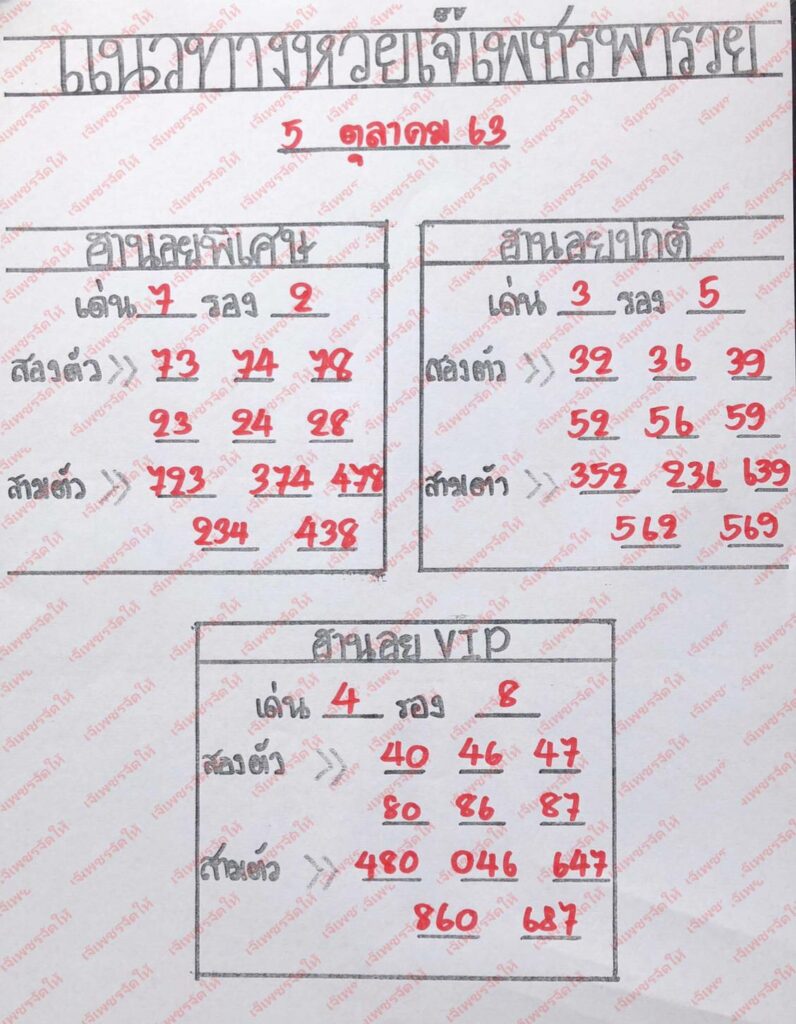 แนวทางหวยเจ๊เพชรพารวย
5 ตุลาคม 63
ฮานอยพิเศษ
เด่น 7 รอง 2
สองตัว >> 73 74 78
23 24 28
สามตัว >> 723 374 478
234 438
ฮานอยปกติ
เด่น 3 รอง 5
สองตัว >> 32 36 39
52 56 59
สามตัว >> 352 236 639
562 569
ฮานอย VIP
เด่น 4 รอง 8
สองตัว >> 40 46 47
80 86 87
สามตัว >> 480 046 647
860 687
เจ๊เพชรจัดให้